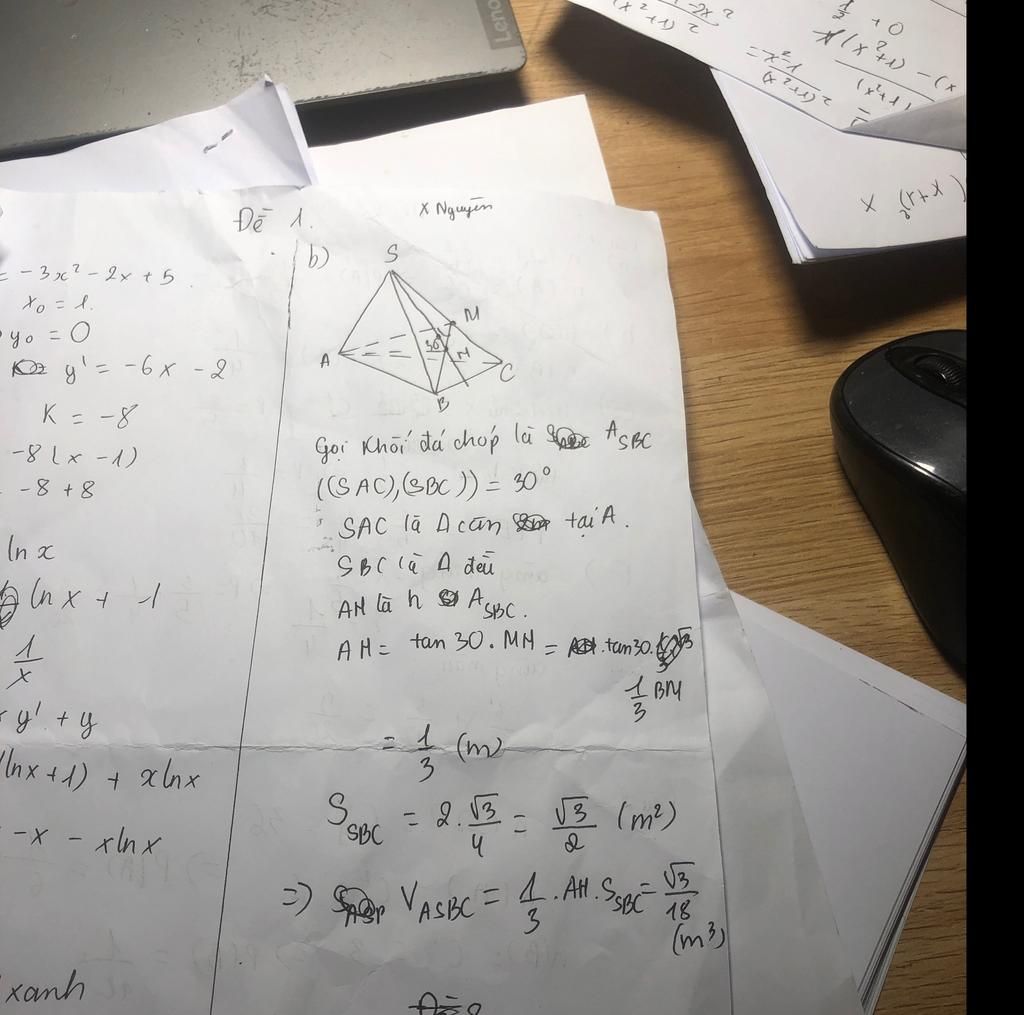 Leno
x² + 1) 2
= x² - 1
(x² + 1) 2
1/2 + 0
(x² + 1) - (x
(x² + 1)
Đề 1.
X Nguyễn
= -3x² - 2x + 5
x₀ = 1.
y₀ = 0
y' = -6x - 2
K = -8
-8(x - 1)
-8 + 8
ln x
ln x + 1
1/x
y' + y
(lnx + 1) + x lnx
-x - x lnx
xanh
b)
S
M
30°
H
A
B
C
Gọi khối đá chóp là A_SBC
((SAC),(SBC)) = 30°
SAC là Δ cân tại A.
SBC là Δ đều
AH là h A_SBC.
AH = tan 30 . MH = tan 30 .
1/3 BM
= 1/3 (m)
S_SBC = 2 . √3/4 = √3/2 (m²)
=> V_ASBC = 1/3 . AH . S_SBC = √3/18
(m³)